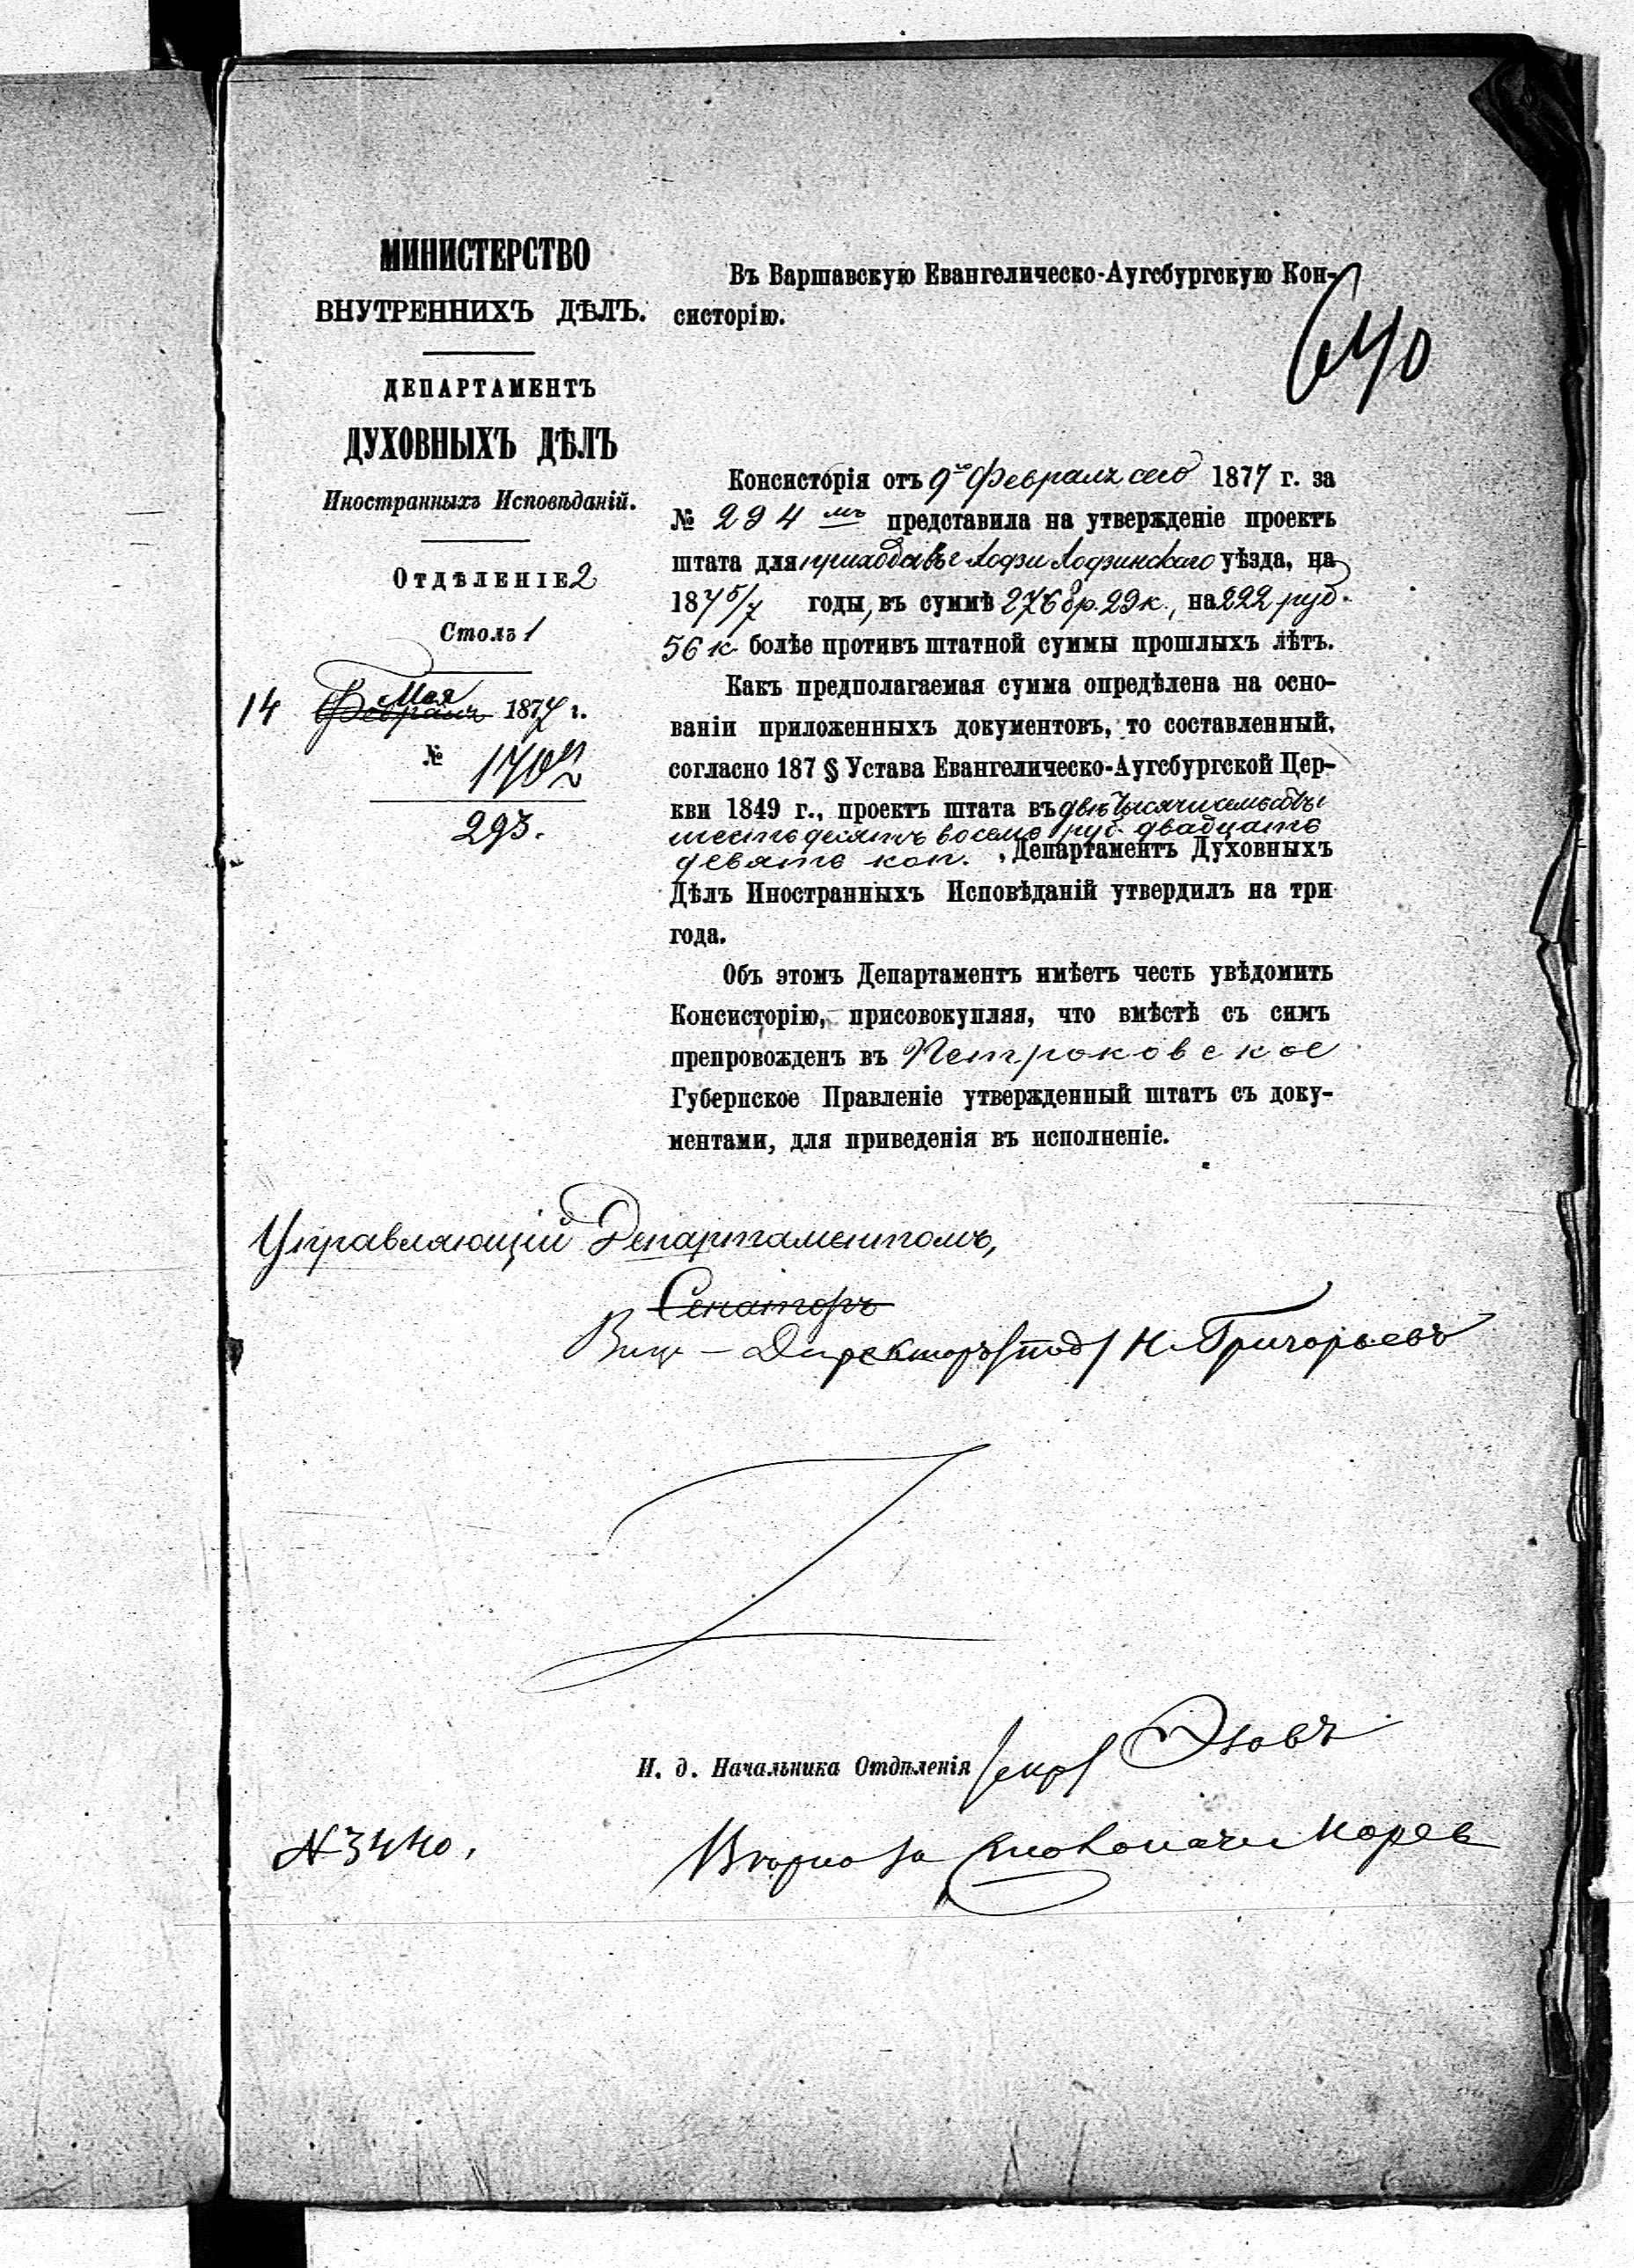 МИНИСТЕРСТВО
ВНУТРЕННИХЪ ДѢЛЪ.
ДЕПАРТАМЕНТЪ
ДУХОВНЫХЪ ДѢЛЪ
Иностранныхъ Исповѣданій.
ОТДѢЛЕНІЕ 2
Столъ 1
14 Февраля Мая 1877 г.
№
293.
Въ Варшавскую Евангелическо-Аугсбургскую Кон-
систорію.
Консисторія отъ 9го Февраля сего 1877 г. за
№ 294 мъ представила на утвержденіе проектъ
штата для прихода въ г. Лодзи Лодзинскаго уѣзда, на
187 годы, въ суммѣ 2768 р. 29 к., на 222 руб.
56 к. болѣе противъ штатной суммы прошлыхъ лѣтъ.
Какъ предполагаемая сумма опредѣлена на осно-
ваніи приложенныхъ документовъ, то составленный,
согласно 187 § Устава Евангелическо-Аугсбургской Цер-
кви 1849 г., проектъ штата въ двѣ тысячи семьсотъ
шестьдесятъ восемь руб. двадцать
девять коп., Департаментъ Духовныхъ
Дѣлъ Иностранныхъ Исповѣданій утвердилъ на три
года.
Объ этомъ Департаментъ имѣетъ честь увѣдомить
Консисторію, присовокупляя, что вмѣстѣ съ симъ
препровожденъ въ Петроковское
Губернское Правленіе утвержденный штатъ съ доку-
ментами, для приведенія въ исполненіе.
Управляющій Департаментомъ,
Сенаторъ
Вице-Директоръ /под/ Н. Григорьевъ
И. д. Начальника Отдѣленія
№ 3440.